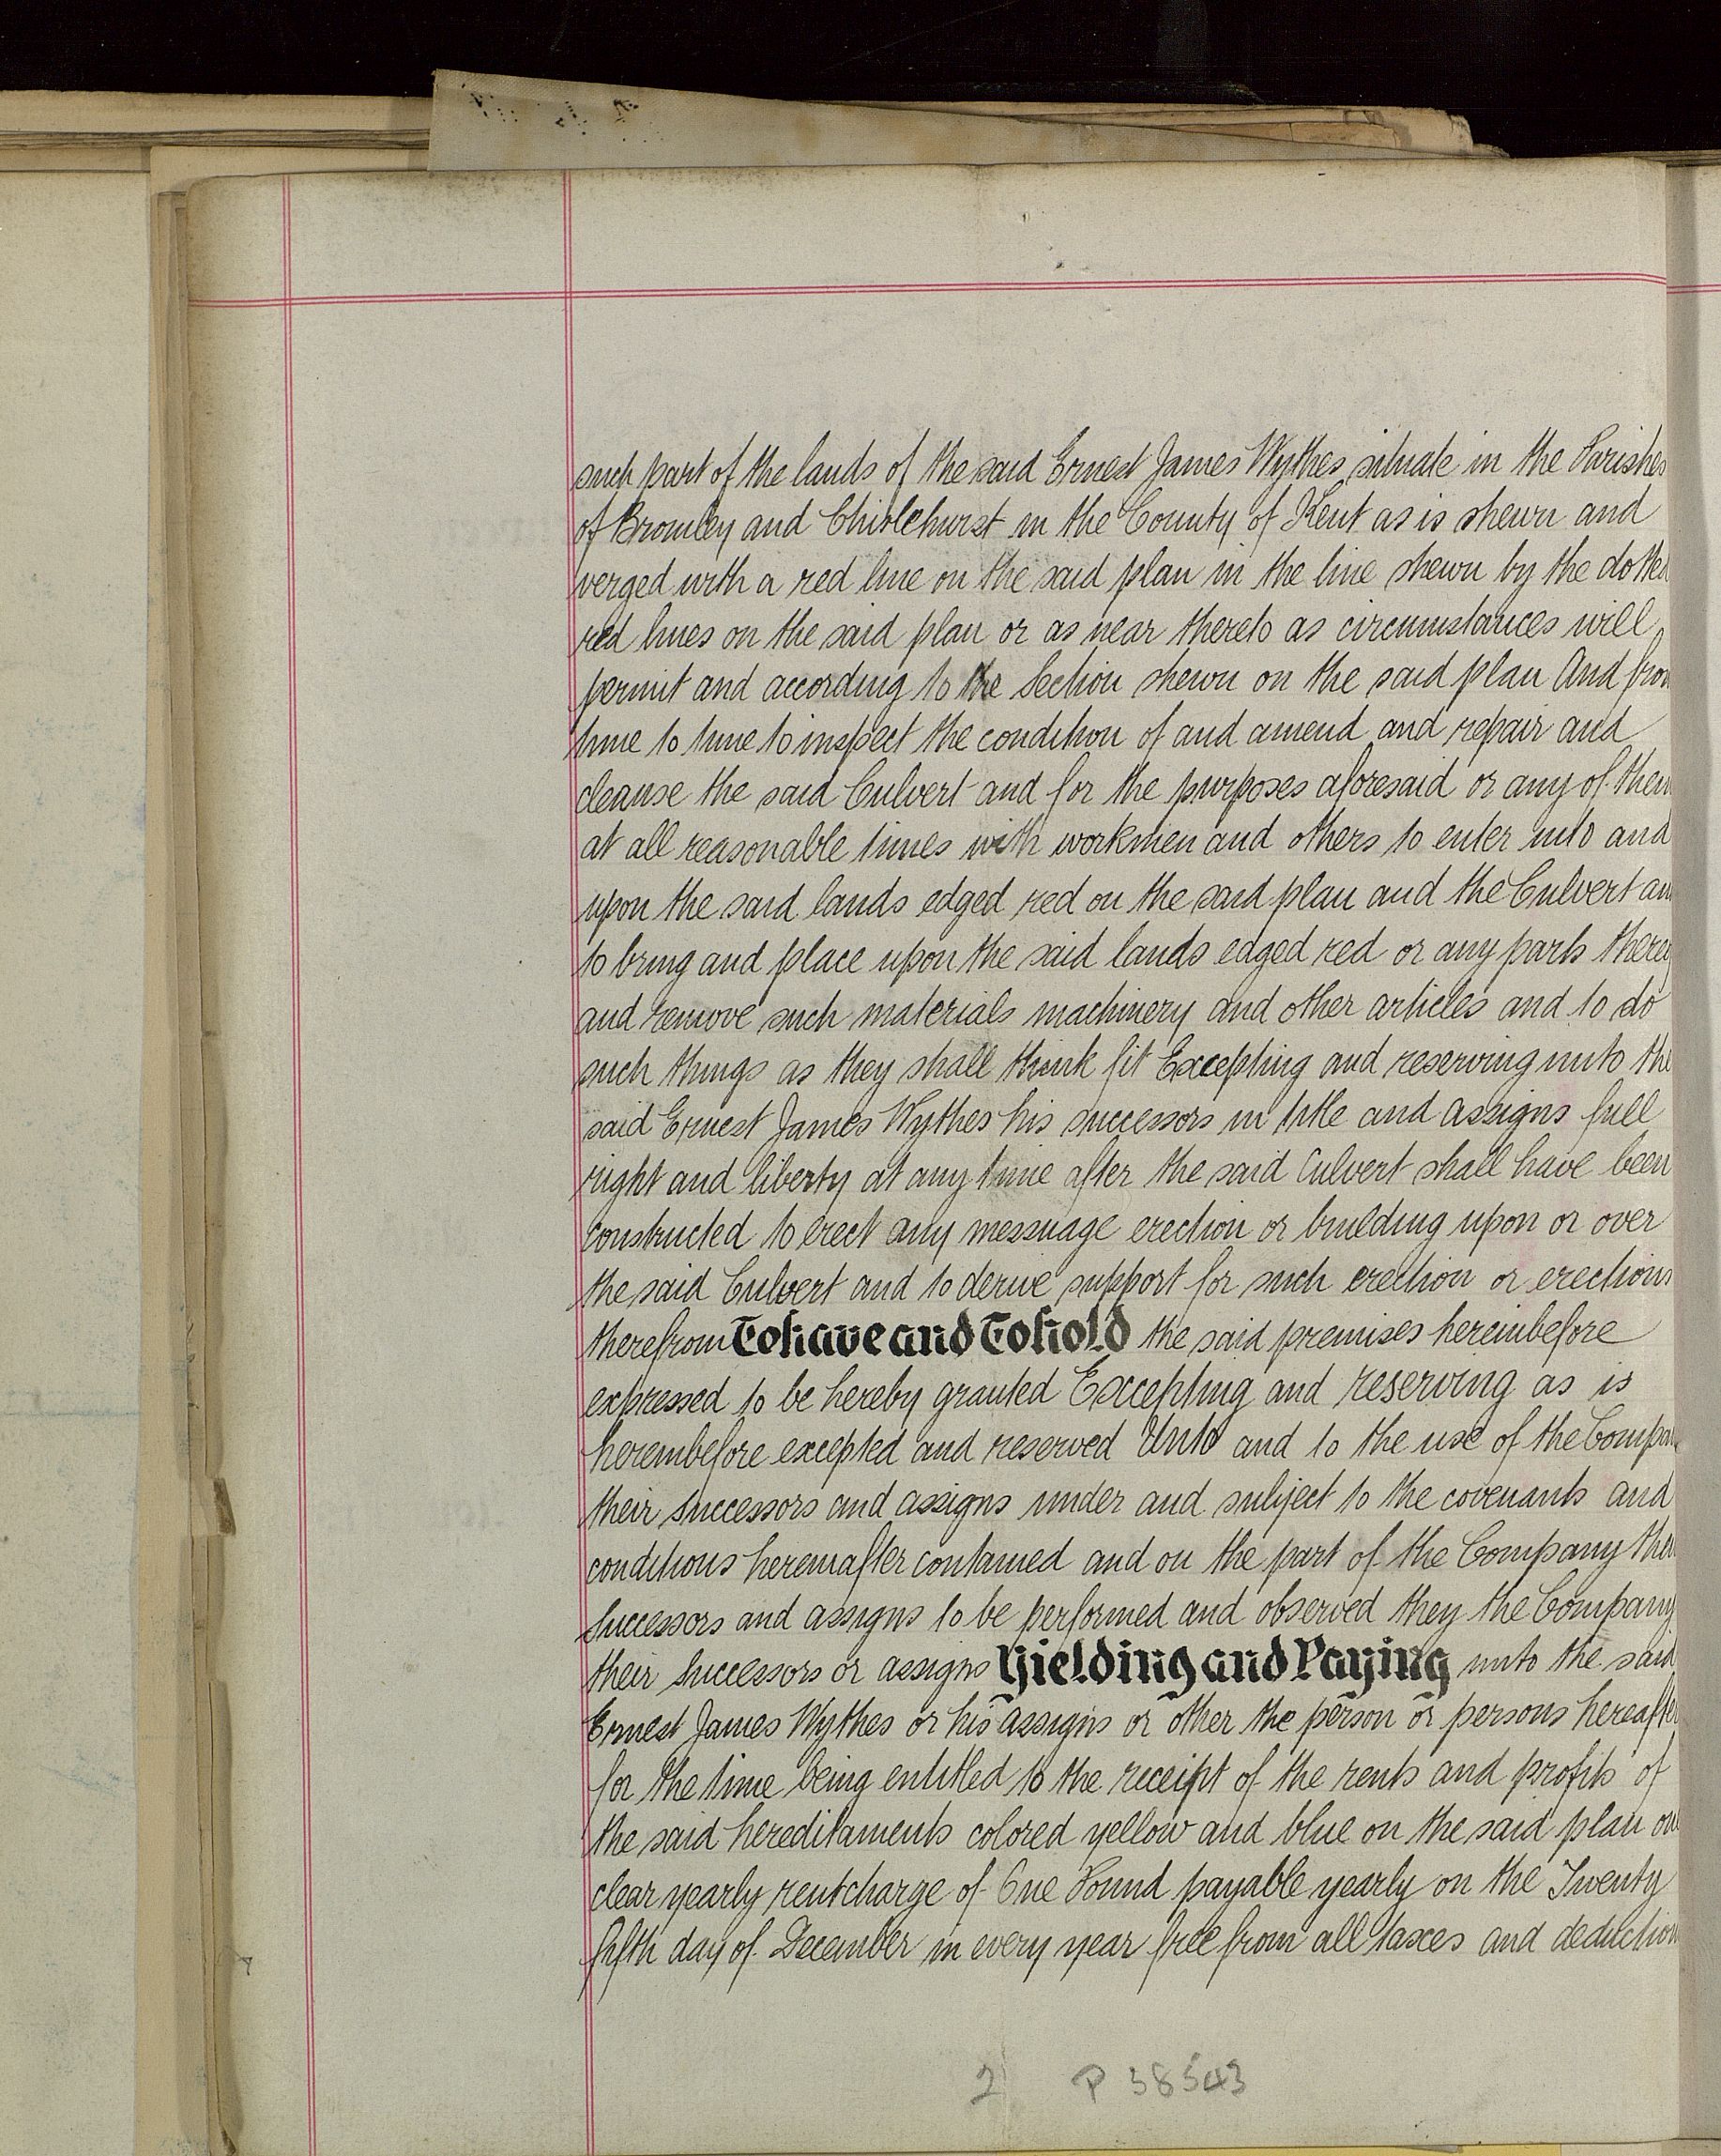 such part of the lands of the said Ernest James Wythes situate in the Parishes
of Bromley and Chislehurst in the County of Kent as is shewn and
verged with a red line on the said plan in the line shewn by the dotted
red lines on the said plan or as near thereto as circumstances will
permit and according to the Section shewn on the said plan And from
time to time to inspect the condition of and amend and repair and
cleanse the said Culvert and for the purposes aforesaid or any of them
at all reasonable times with workmen and others to enter into and
upon the said lands edged red on the said plan and the Culvert an
to bring and place upon the said lands edged red or any parts thereof
and remove such materials machinery and other articles and to do
such things as they shall think fit Excepting and reserving unto the
said Ernest James Wythes his successors in title and assigns full
right and liberty at any time after the said Culvert shall have been
constructed to erect any messuage erection or building upon or over
the said Culvert and to derive support for such erection or erections
therefrom To have and To hold the said premises hereinbefore
expressed to be hereby granted Excepting and reserving as is
hereinbefore excepted and reserved Unto and to the use of the Compa
their successors and assigns under and subject to the covenants and
conditions hereinafter contained and on the part of the Company thei
successors and assigns to be performed and observed they the Company
their successors or assigns Yielding and Paying unto the said
Ernest James Wythes or his assigns or other the person or persons hereafter
for the time being entitled to the receipt of the rents and profits of
the said hereditaments colored yellow and blue on the said plan one
clear yearly rentcharge of One Pound payable yearly on the Twenty
fifth day of December in every year free from all taxes and deduction
2 P 38543